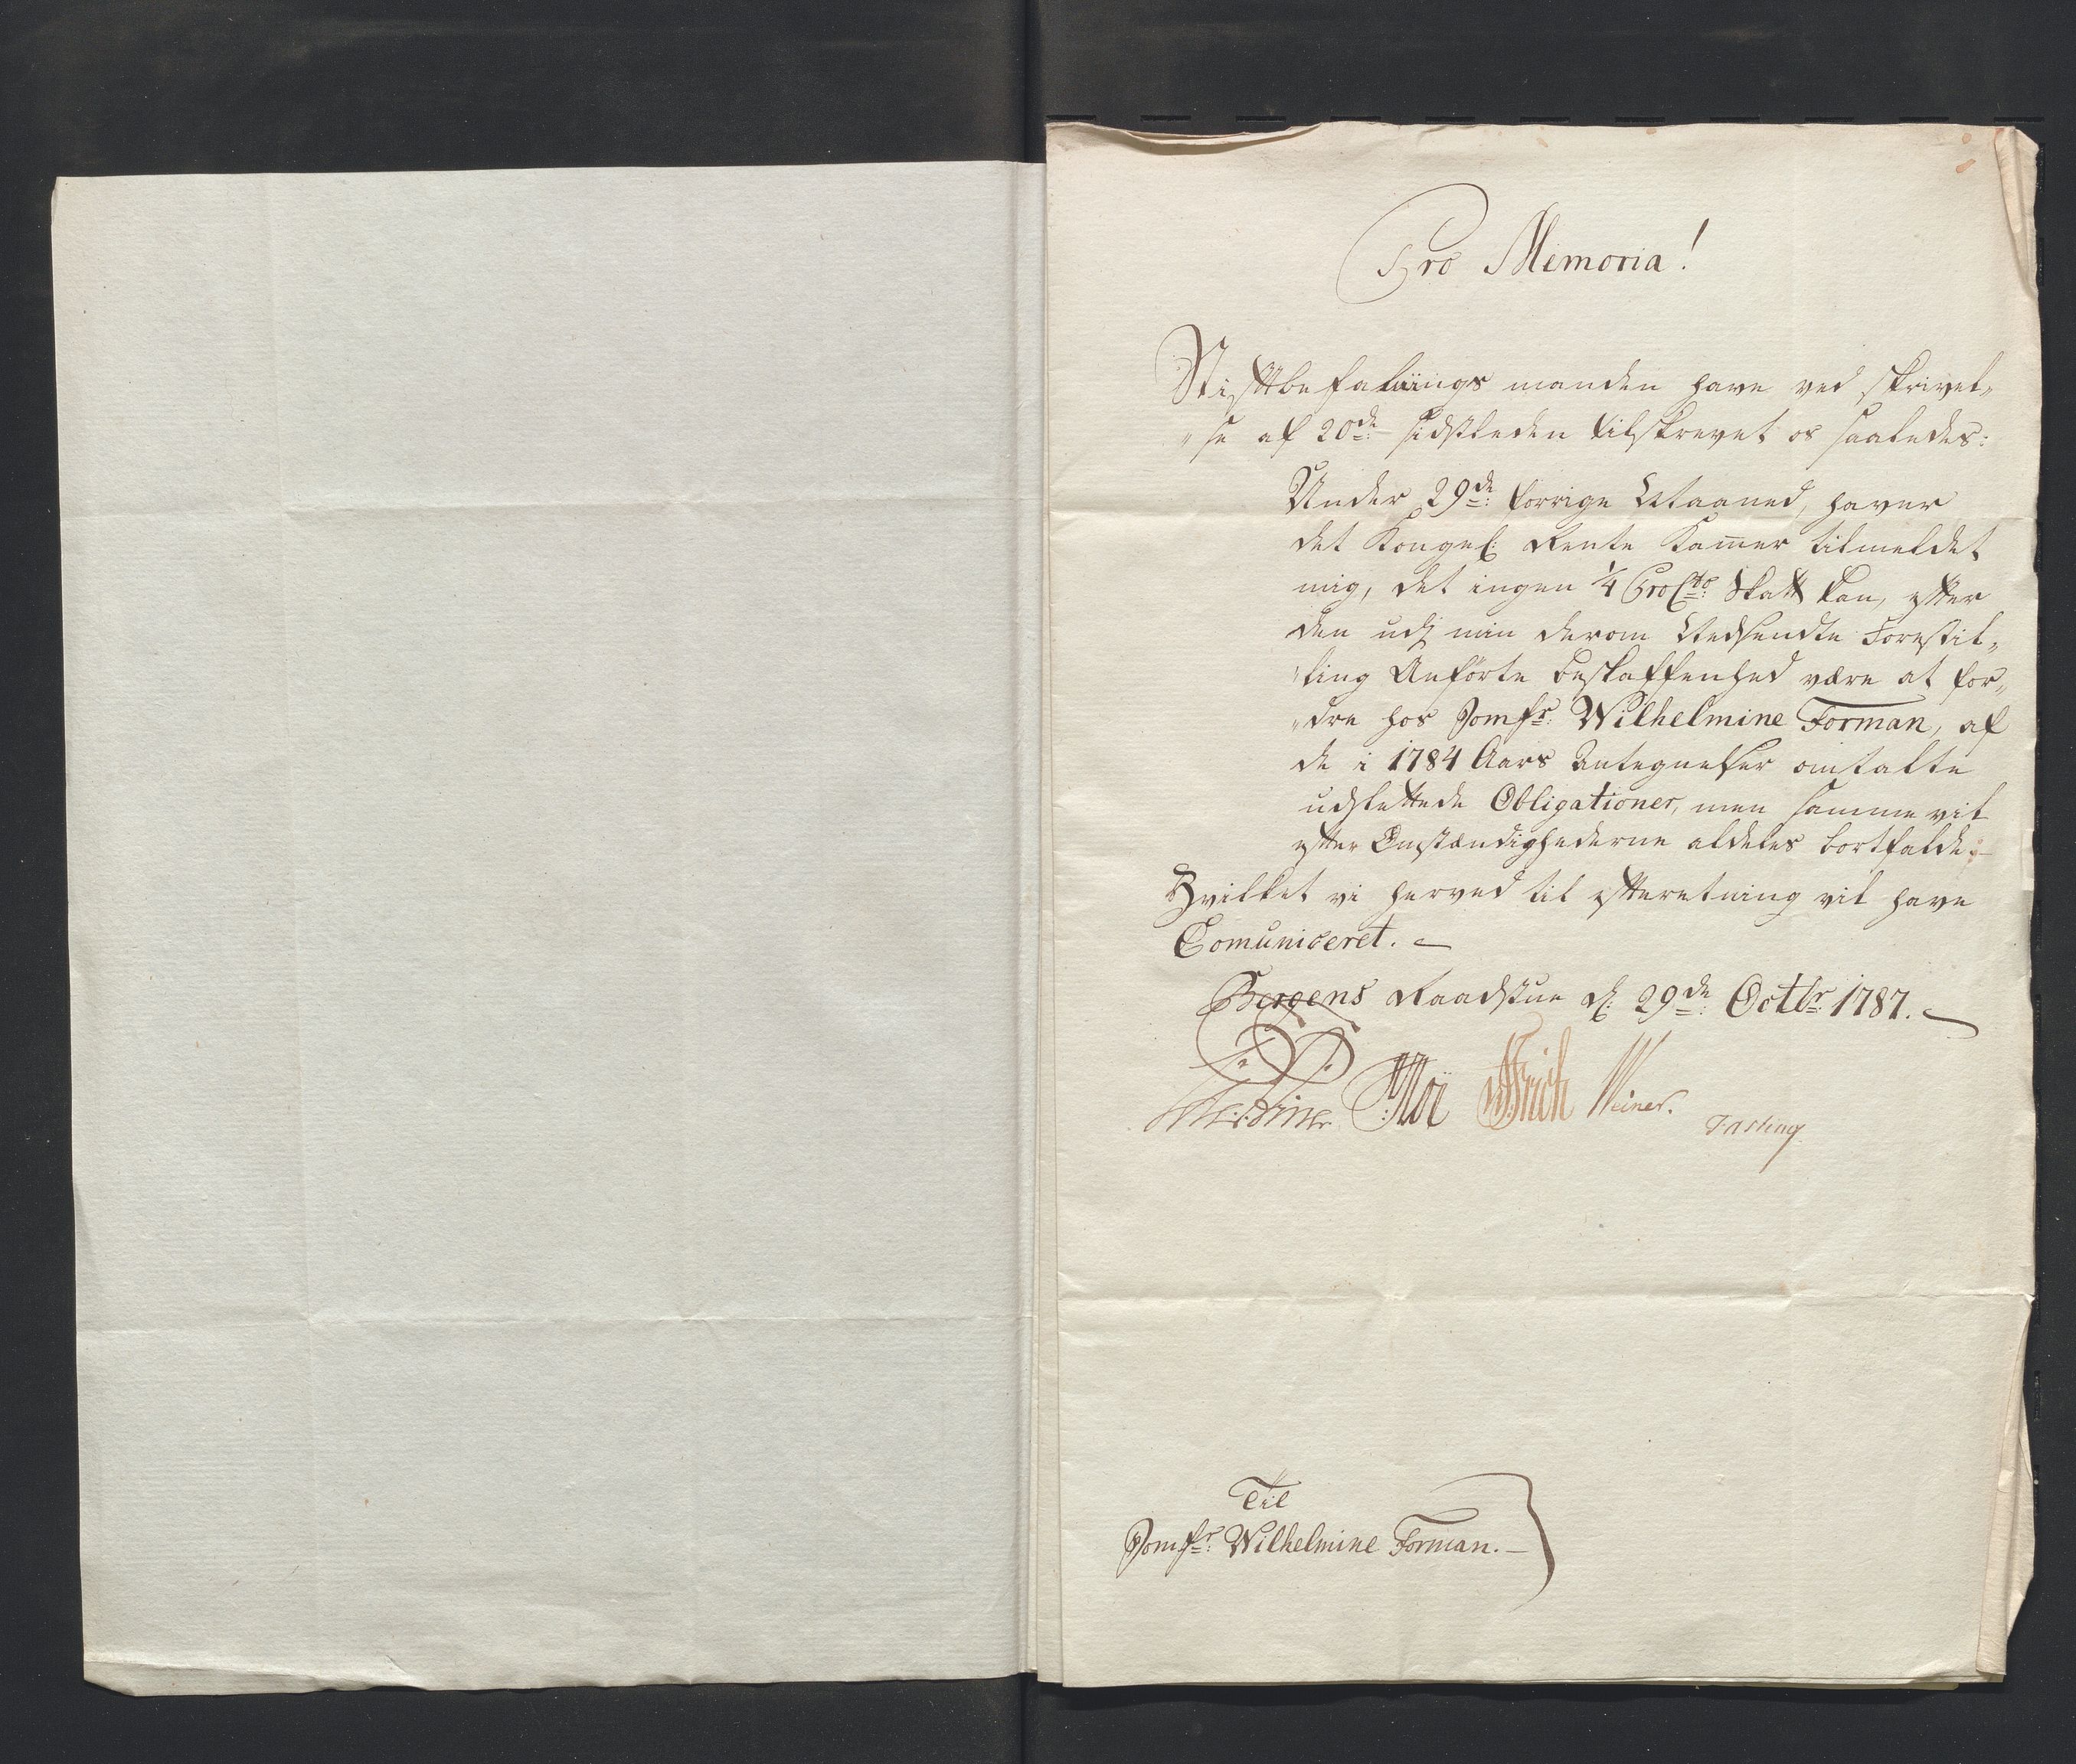 Pro Memoria!
Stiftbefalings manden have ved skrivel„
„se af 20de sidstleden tilskrevet os saaledes:
Under 29de: forrige Maaned, haver
det Kongel: Rente Kamer tilmeldet
mig, det ingen 1/4 ProCto: Skatt kan, efter
den udj min derom Nedsendte Forestil„
„ling Anførte beskaffenhed være at for„
„dre hos Jomfr: Wilhelmine Forman, af
de i 1784 Aars Antegnelser omtalte
udslettede Obligationer, men samme vil
efter Omstændighederne aldeles bortfalde;
Hvilket vi herved til efterretning vil have
Comuniceret.
Bergens Raadstue d: 29de: Octbr: 1787.
Krich Weiner. Fasting
Til
Jomfr: Wilhelmine Forman.